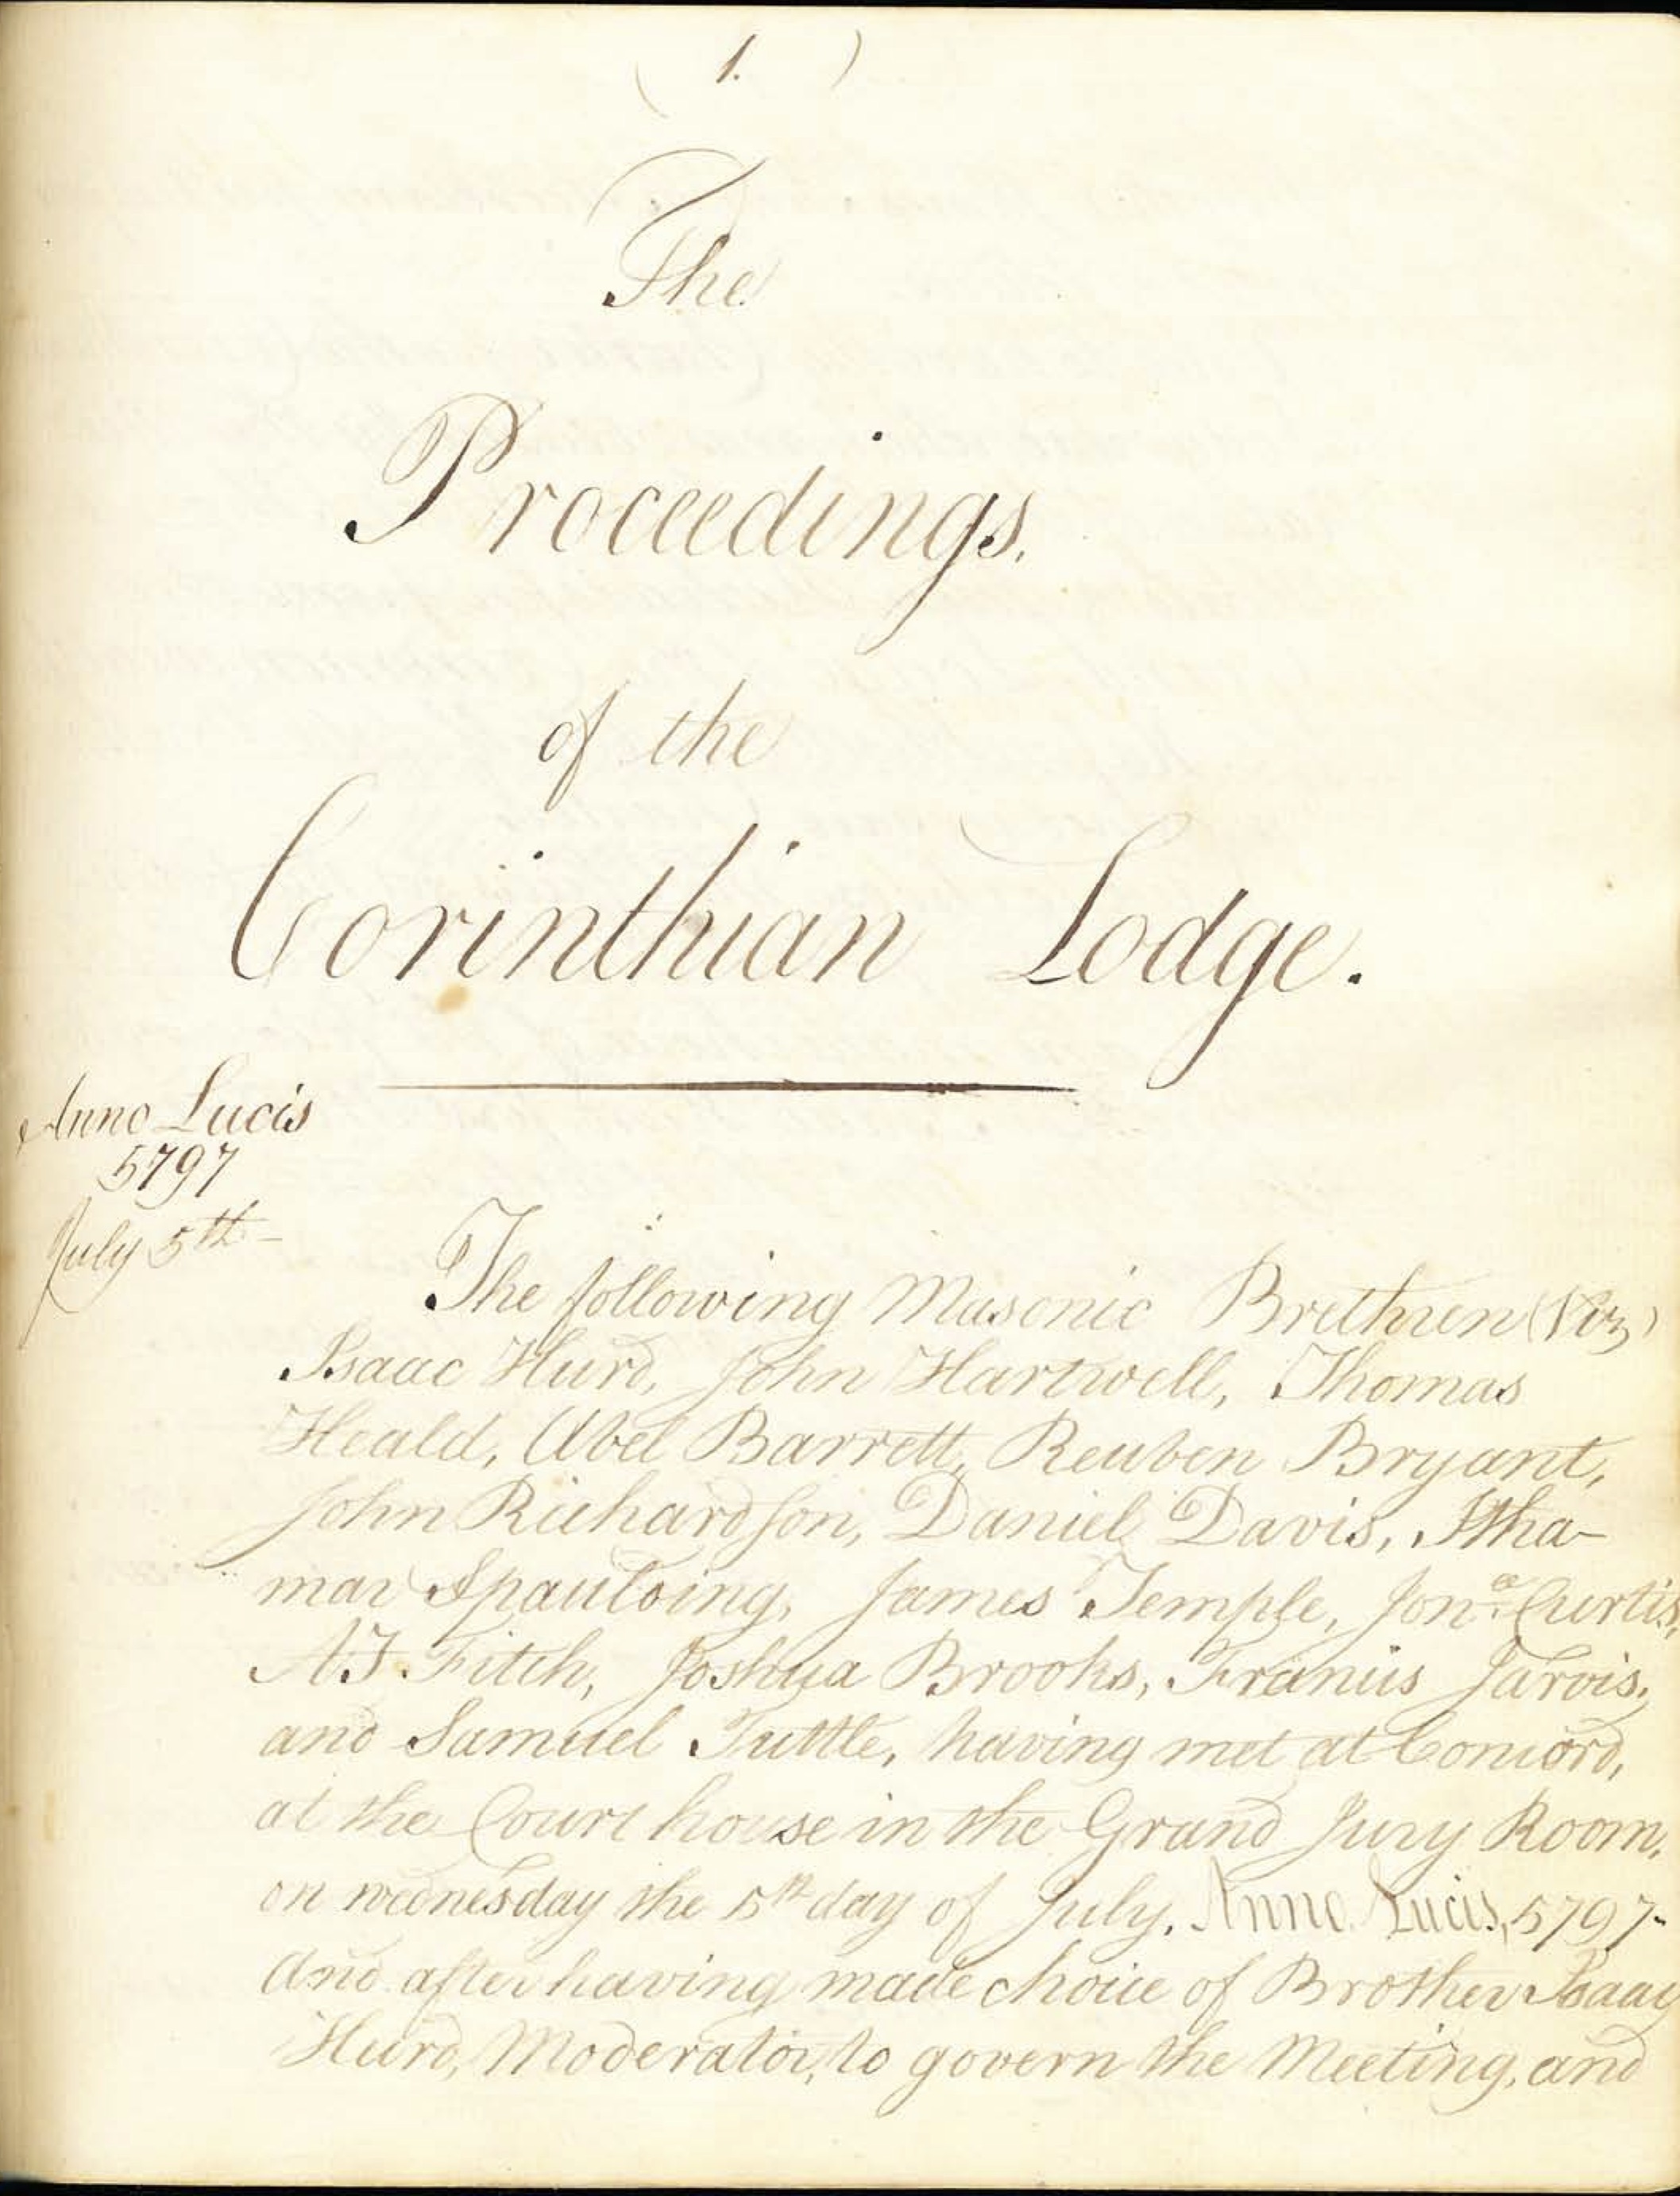 ( 1. )
The
Proceedings.
of the
Corinthian Lodge.
Anno Lucis
5797
July 5th
The following Masonic Brethren (Viz)
Isaac Hurd, John Hartwell, Thomas
Heald, Abel Barrett, Reuben Bryant,
John Richardson, Daniel Davis, Itha-
mar Spaulding, James Temple, Jona. Curtis,
AJ Fitch, Joshua Brooks, Francis Jarvis,
and Samuel Tuttle, having met at Concord,
at the Court house in the Grand Jury Room,
on wednesday the 5th day of July, Anno Lucis, 5797-
And after having made choice of Brother Isaac
Hurd, Moderator, to govern the Meeting, and